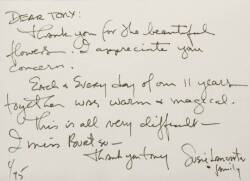 DEAR TONY:
Thank you for the beautiful
flowers. I appreciate your
concern.
Each & every day of our 11 years
together was warm & magical.
This is all very difficult –
I miss Burt so –
Thank you Tony
Susie Lancaster
& family
1/95